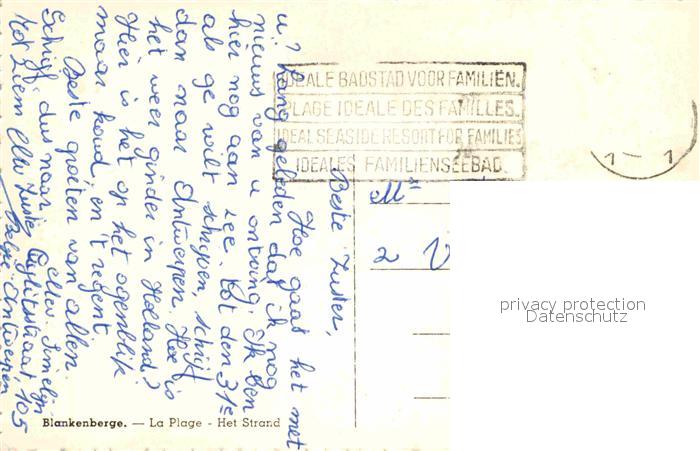 Beste Zuster,
Hoe gaat het met
u? Lang geleden dat ik nog
nieuws van u ontving. Ik ben
hier nog aan zee. Tot den 31e
als ge wilt schrijven, schrijf
dan naar Antwerpen. Hoe is
het weer ginder in Holland?
Hier is het op het ogenblik
maar koud en 't regent
Beste groeten van allen.
Schrijf dus naar
tot ziens Zuster
België Antwerpen 105
IDEALE BADSTAD VOOR FAMILIEN.
PLAGE IDEALE DES FAMILLES.
IDEAL SEASIDE RESORT FOR FAMILIES
IDEALES FAMILIENSEEBAD.
1 - 1
Mr
2 V
privacy protection
Datenschutz
Blankenberge. — La Plage - Het Strand